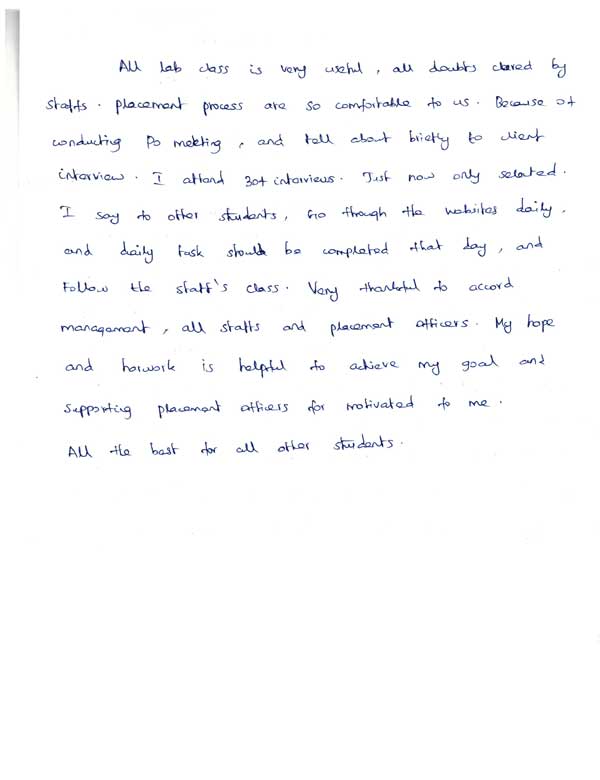 All Lab class is very useful, all doubts clered by
staffs. placement process are so comfortable to us. Because of
conducting Po meeting, and tell about briefly to client
interview. I attend 30+ interviews. Just now only selected.
I say to other students, Go through the websites daily,
and daily task should be completed that day, and
Follow the staff's class. Very thankful to accord
management, all staffs and placement officers. My hope
and harwork is helpful to achieve my goal and
supporting placement officers for motivated to me.
All the best for all other students.